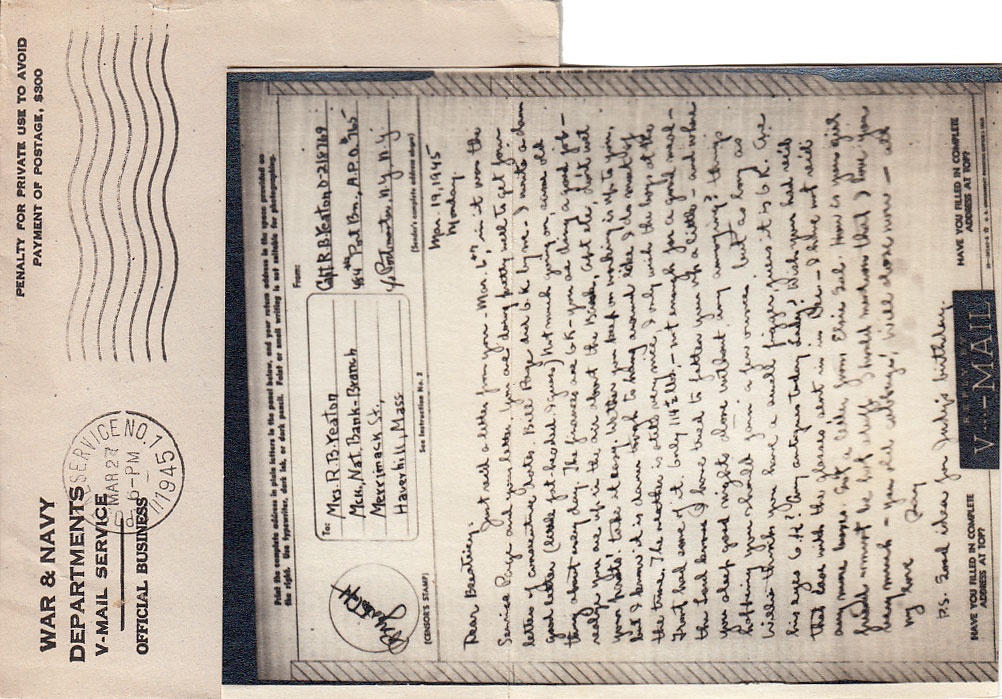 PENALTY FOR PRIVATE USE TO AVOID
PAYMENT OF POSTAGE, $300
WAR & NAVY
DEPARTMENTS
V-MAIL SERVICE
OFFICIAL BUSINESS
SERVICE NO. 1
MAR 27
6-PM
1945
Print the complete address in plain letters in the panel below, and your return address in the space provided on
the right. Use typewriter, dark ink, or dark pencil. Faint or small writing is not suitable for photographing.
To:
Mrs. R. B. Yeaton
Mer. Nat. Bank-Branch
Merrimack St.,
Haverhill, Mass
From:
Capt R. B. Yeaton, O-218769
Port Bn., A.P.O. #
c/o Postmaster, N.Y., N.Y.
(Sender's complete address above)
(CENSOR'S STAMP)
See Instruction No. 2
Mar 19, 1945
Monday.
Dear Beatrice:
Just rec'd a letter from you - Mar. 6th, in it was the
Service Page and your letter. You are doing pretty well to get four
letters of consecutive dates. Bill Page did O.K. by me. I wrote a damn
good letter (little pot headed I guess) Not much going on, same old
thing about every day. The finances are O.K. - you are doing a good job -
realize you are up in the air about the Bank, apt etc, don't wet
your pants! take it easy. Whether you keep on working is up to you,
but I know it is damn tough to hang around idle. I do most of
the time. The weather is still very nice. I only wish the boys at the
Front had some of it. Only 114½ lbs, - not enough for a good
the Lord knows I have tried to fatten you up a little - and when
you sleep good nights alone without any annoying? things
bothering you should gain a few ounces. but as long as
Willis thinks you have a swell figger guess it is O.K. Are
his eyes O.K? Any autopsies today, lady? Wish you had rec'd
that box with the glasses sent in in Dec - I have not rec'd
any more boxes. Got a letter from Elsie Sul. How is your girl
friend
very much - you old cabbage, will close now - all
my love Ray
P.S. Good idea for Judy's birthday.
HAVE YOU FILLED IN COMPLETE
ADDRESS AT TOP?
V-MAIL
HAVE YOU FILLED IN COMPLETE
ADDRESS AT TOP?